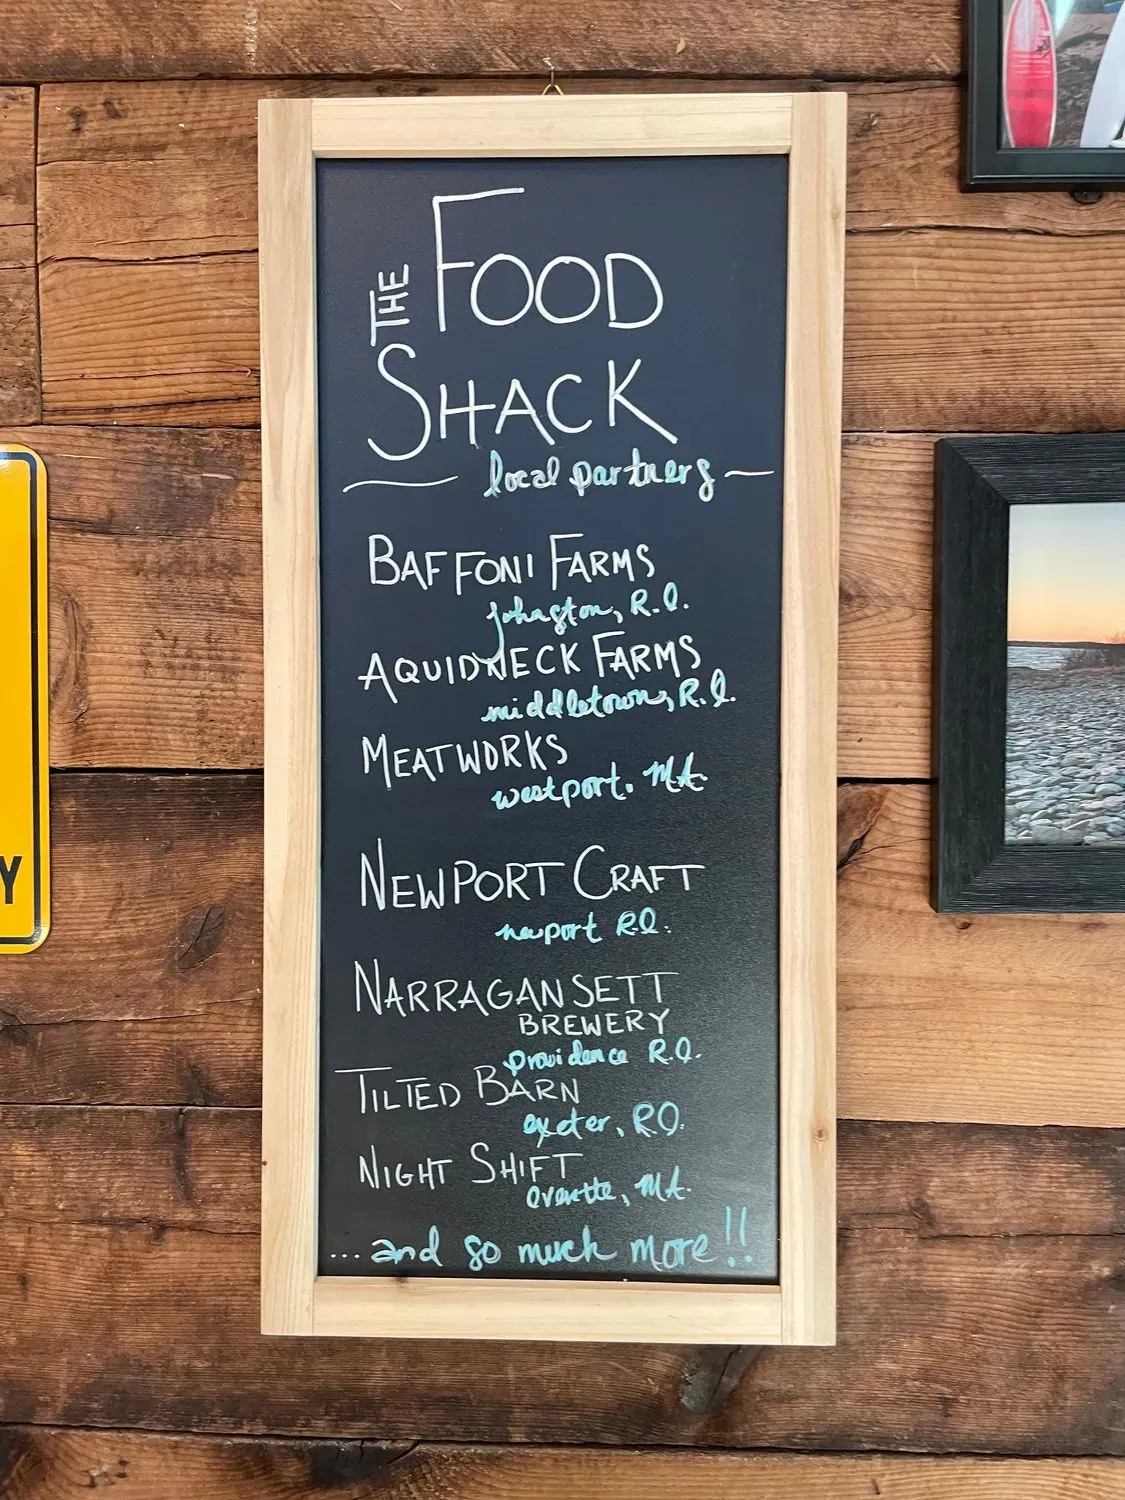 THE FOOD
SHACK
local partners
BAFFONI FARMS
johnston, R.I.
AQUIDNECK FARMS
middletown, R.I.
MEATWORKS
westport, MA.
NEWPORT CRAFT
newport R.I.
NARRAGANSETT
BREWERY
providence R.I.
TILTED BARN
exeter, R.I.
NIGHT SHIFT
everette, MA.
...and so much more!!
Y